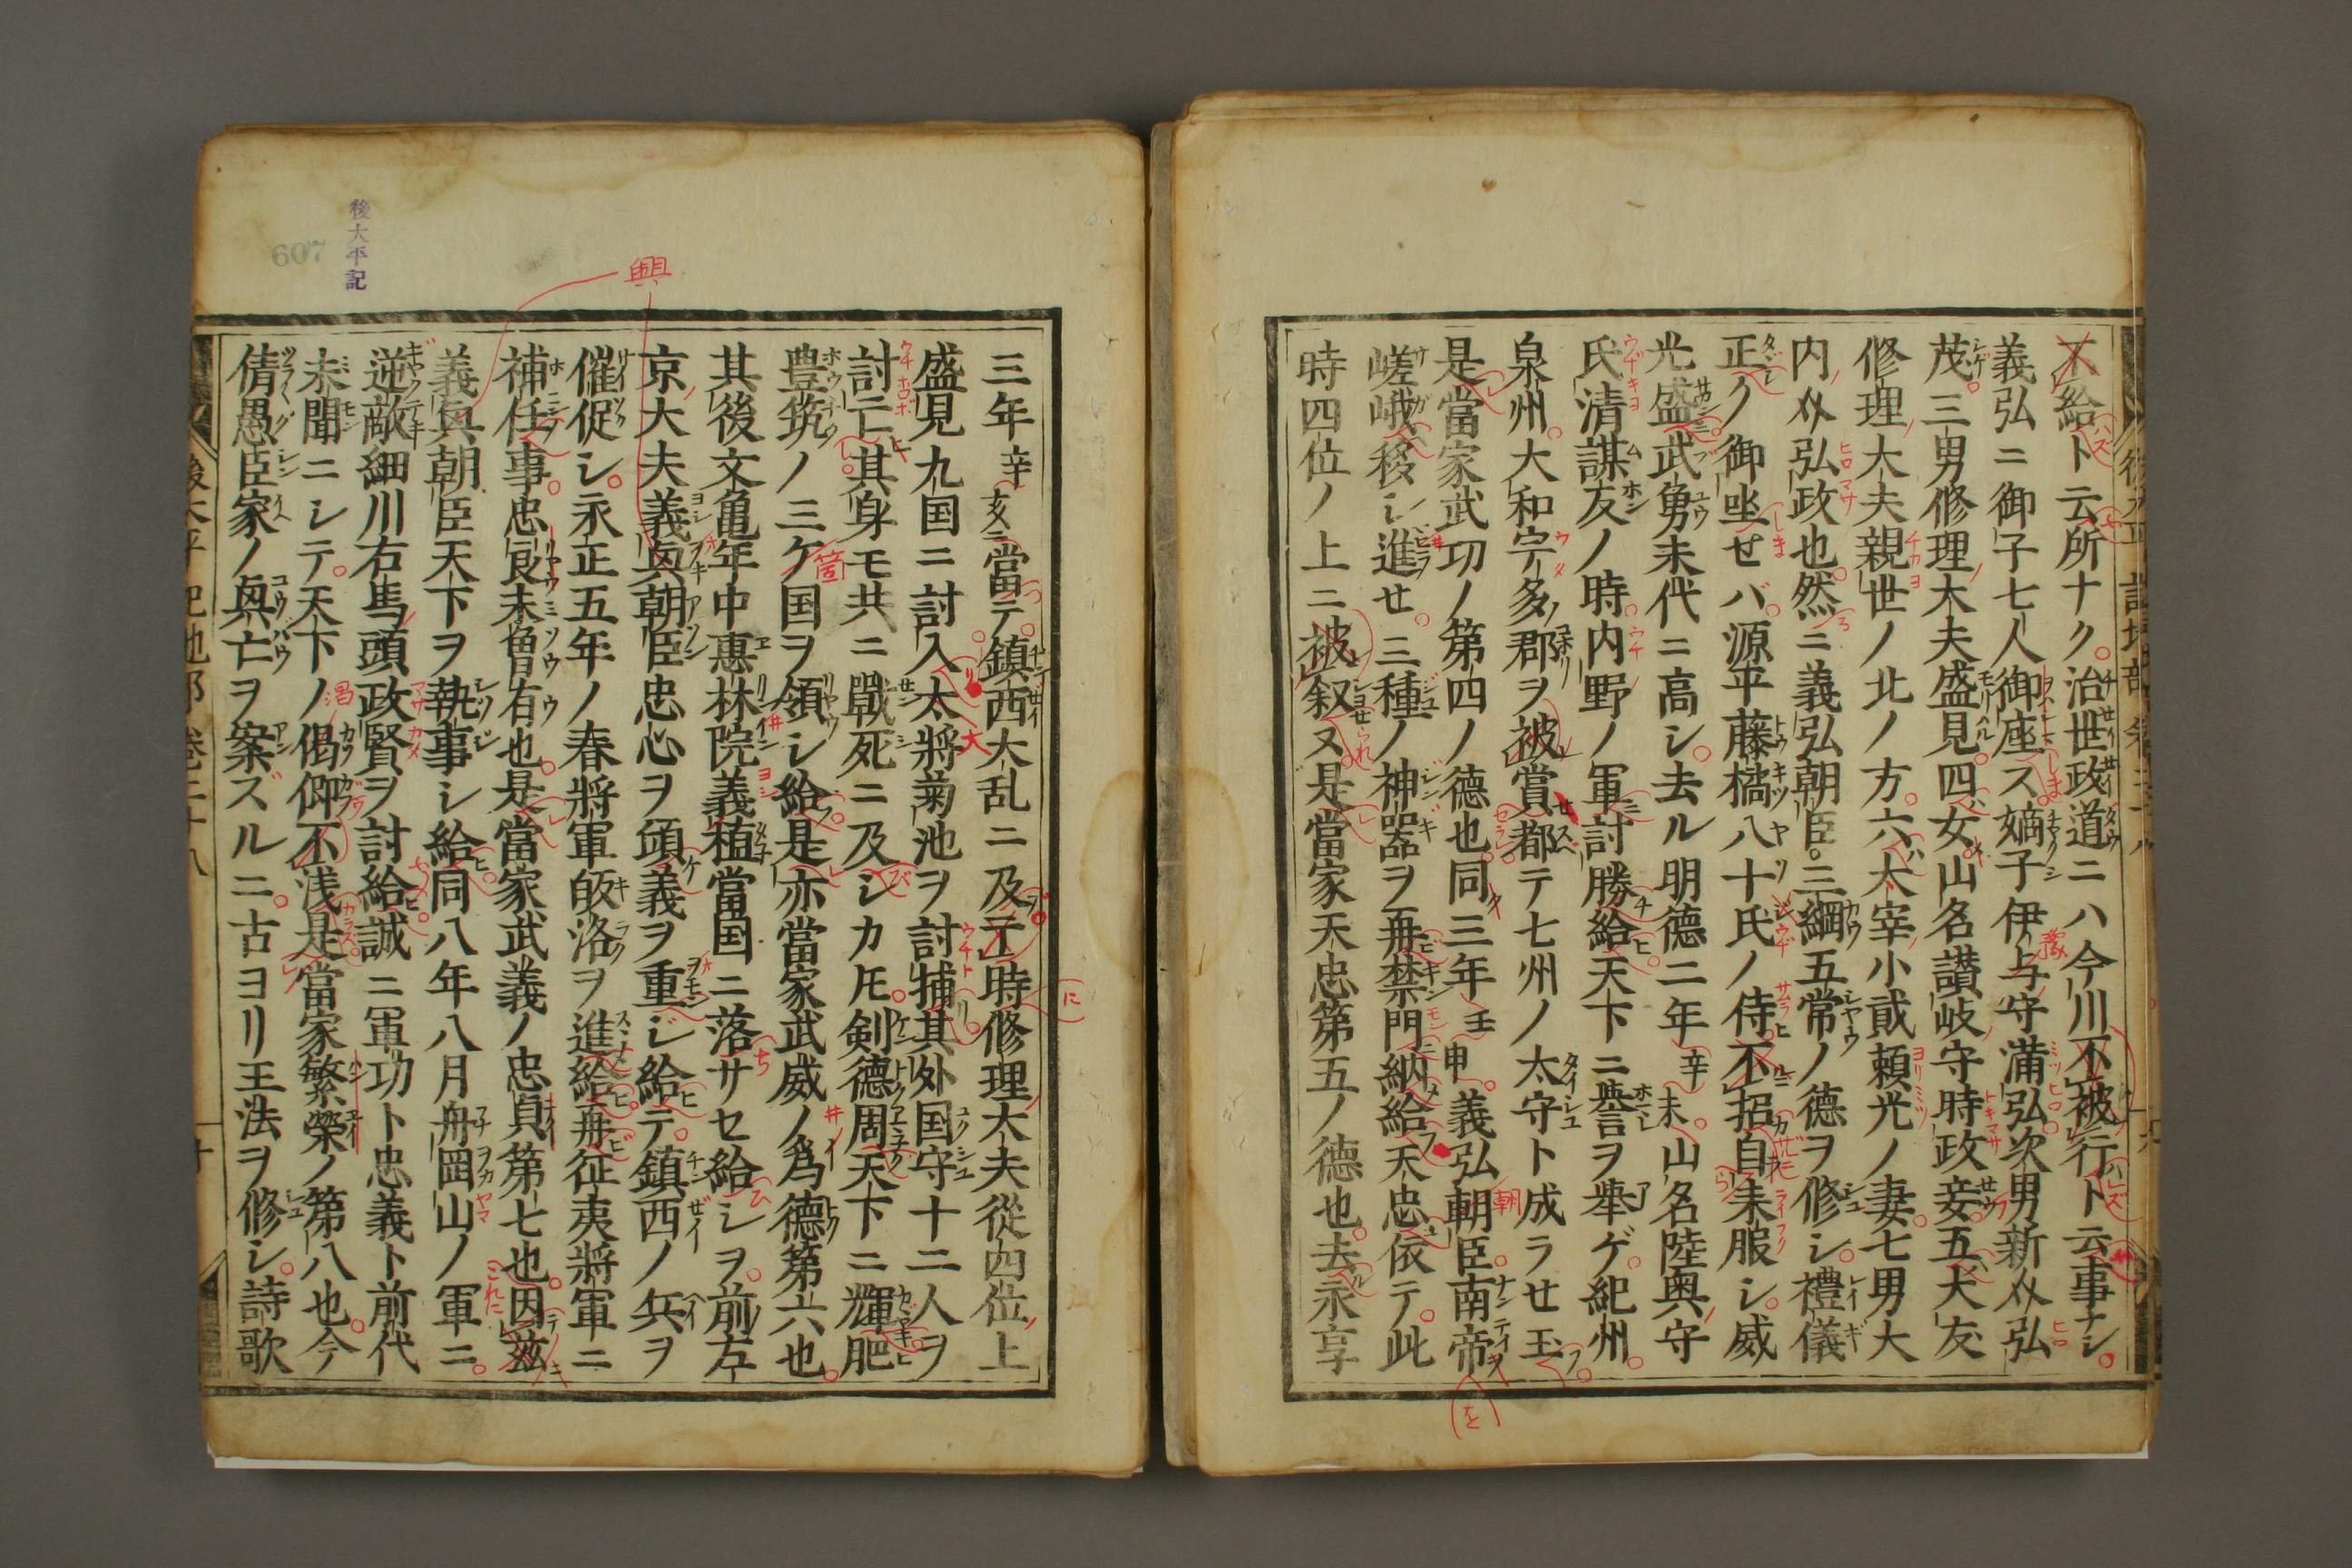 不給ト云所ナク治世政道ニハ今川不被行ト云事ナシ
義弘ニ御子七人御座ス嫡子伊与守満弘次男新介弘
茂三男修理大夫盛見四女山名讃岐守時政妾五大友
修理大夫親世ノ北ノ方六太宰小貮頼光ノ妻七男大
内介弘政也然ニ義弘朝臣三綱五常ノ徳ヲ修シ禮儀
正ノ御坐セバ源平藤橘八十氏ノ侍不招自来服シ威
光盛武勇末代ニ高シ去ル明徳二年辛未山名陸奥守
氏清謀友ノ時内野ノ軍討勝給天下ニ誉ヲ挙ゲ紀州
泉州大和宇多郡ヲ被賞都テ七州ノ太守ト成ラせ玉
是當家武功ノ第四ノ徳也同三年壬申義弘朝臣南帝
嵯峨移シ進せ三種ノ神器ヲ再禁門納給天忠依テ此
時四位ノ上ニ被叙又是當家天忠第五ノ徳也去永享
後太平記地部 巻三十八
三年辛亥ニ當テ鎮西大乱ニ及于時修理大夫從四位上
盛見九国ニ討入太將菊池ヲ討捕其外国守十二人ヲ
討亡其身モ共ニ戰死ニ及シカ圧剣德周天下ニ輝肥
豊筑ノ三ケ国ヲ領シ給是亦當家武威ノ為德第六也
其後文亀年中惠林院義植當国ニ落サセ給シヲ前左
京大夫義興朝臣忠心ヲ傾義ヲ重シ給テ鎮西ノ兵ヲ
催促シ永正五年ノ春將軍皈洛ヲ進給再征夷將軍ニ
補任事忠良未曽有也是當家武義ノ忠貞第七也因茲
義興朝臣天下ヲ執事シ給同八年八月舟岡山ノ軍ニ
逆敵細川右馬頭政賢ヲ討給誠ニ軍功ト忠義ト前代
未聞ニシテ天下ノ偈仰不浅是當家繁榮ノ第八也今
倩愚臣家ノ興亡ヲ案ズルニ古ヨリ王法ヲ修シ詩歌
後太平記地部 巻三十八 十
興
後太平記
607